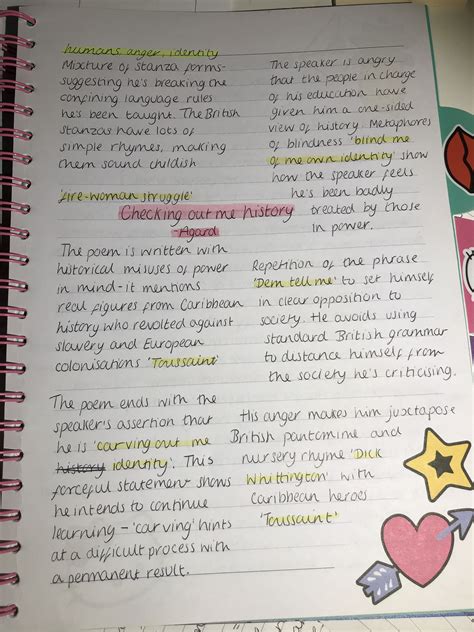 humans, anger, identity
Mixture of Stanza forms-
suggesting he's breaking the
confining language rules
he's been taught. The British
stanzas have lots of
simple rhymes, making
them sound childish
The speaker is angry
that the people in charge
of his education have
given him a one-sided
view of history. Metaphores
of blindness 'blind me
of me own identity' show
how the speaker feels
he's been badly
treated by those
in power.
'fire-woman struggle'
Checking out me history
-Agard
The poem is written with
historical misuses of power
in mind-it mentions
real figures from Caribbean
history who revolted against
slavery and European
colonisations 'Toussaint'
Repetition of the phrase
'Dem tell me' to set himself
in clear opposition to
society. He avoids using
standard British grammar
to distance himself from
the society he's criticising.
The poem ends with the
speaker's assertion that
he is 'carving out me
history identity'. This
forceful statement shows
he intends to continue
learning - 'carving' hints
at a difficult process with
a permanent result.
His anger makes him juxtapose
British pantomine and
nursery rhyme 'Dick
Whittington' with
Caribbean heroes
'Toussaint'